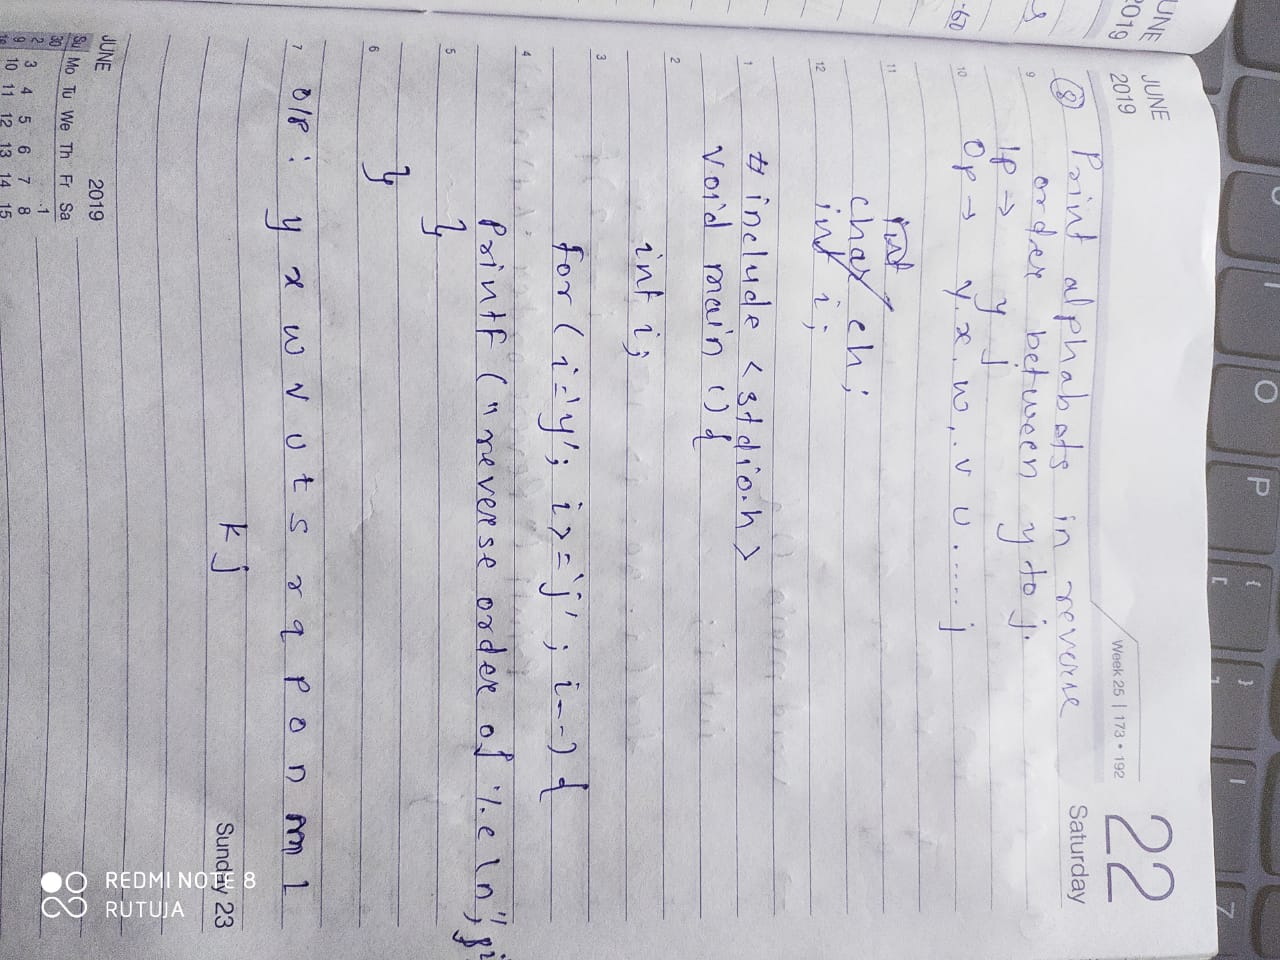 JUNE
2019
JUNE
2019
Week 25 | 173 • 192
22
Saturday
⑧ Print alphabats in reverse
order between y to j.
9
Ip → y j
Op → y. x. w, . v u ..... j
10
11
int
char ch;
12
int i;
# include <stdio.h>
1
void main () {
2
int i;
3
for ( i='y'; i>='j' ; i--) {
4
printf ("reverse order of %c \n",
5
}
6
}
7
o/p : y x w v u t s r q p o n m l
k j
Sunday 23
JUNE 2019
Su Mo Tu We Th Fr Sa
30 1
2 3 4 5 6 7 8
9 10 11 12 13 14 15
REDMI NOTE 8
RUTUJA
O
P
{
[
}
]
7